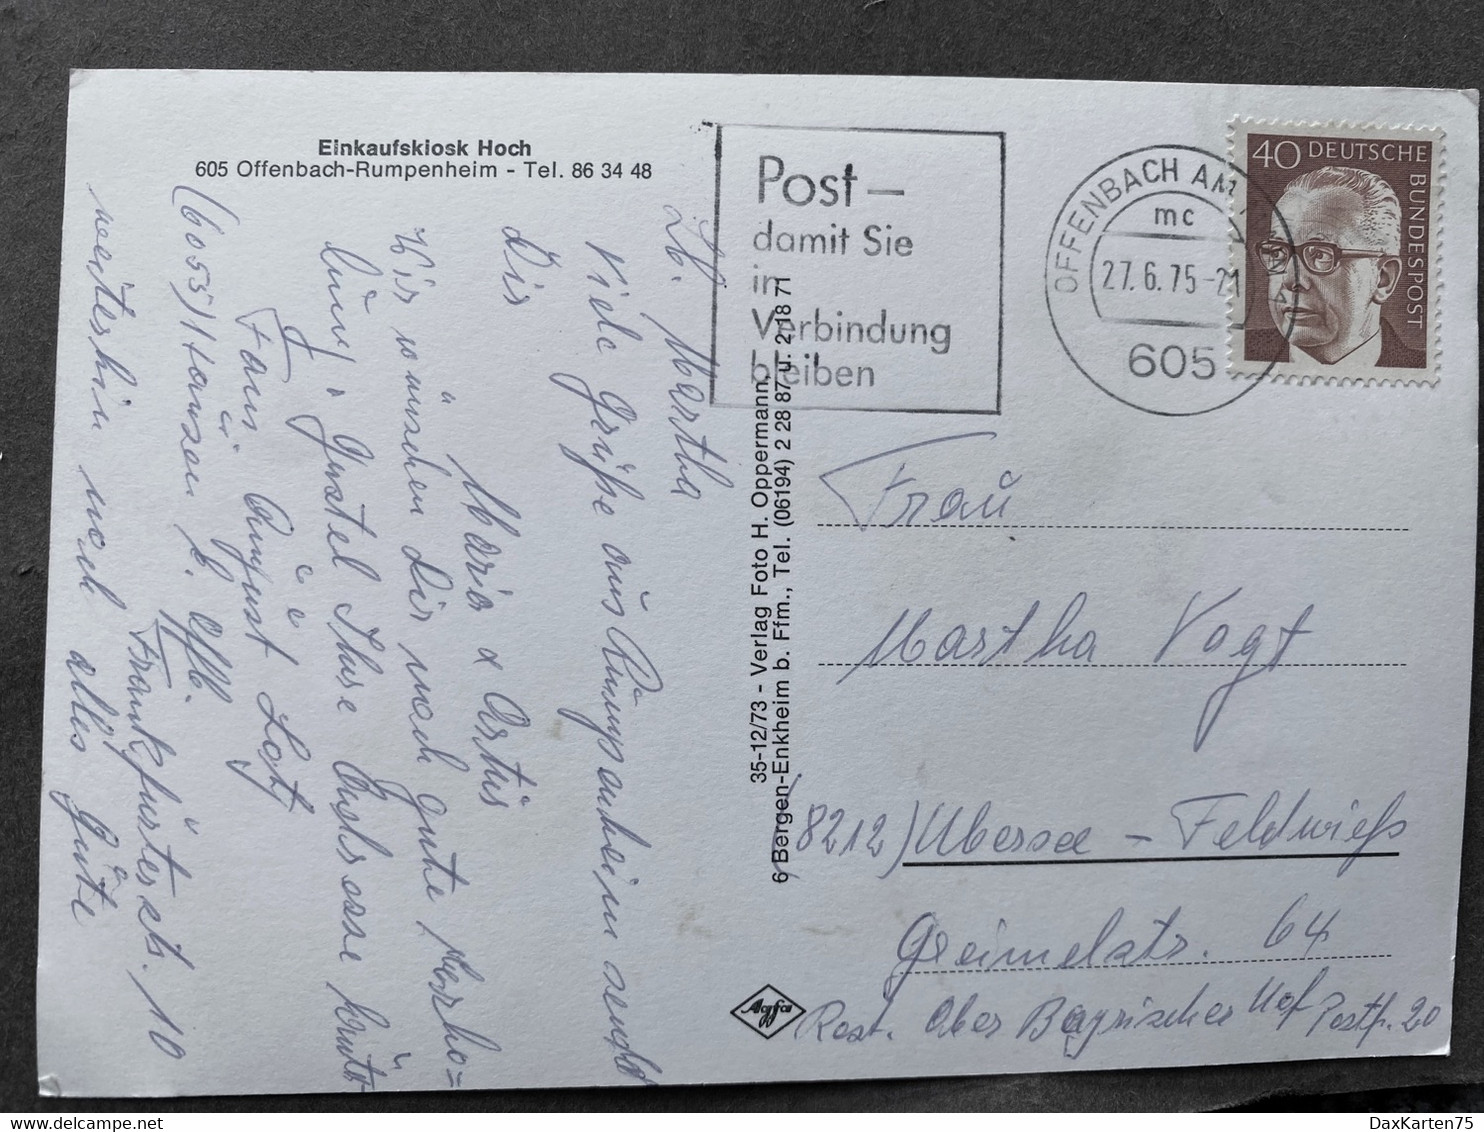 Einkaufskiosk Hoch
605 Offenbach-Rumpenheim - Tel. 86 34 48
Lb. Martha
Viele Grüße aus Rumpenheim sendet
Dir
Maria & Artur
Wir wünschen Dir noch gute Erho=
lung. Gustel Ihre Adresse
Frau August
(6055) Hausen b. Offb.
Frankfurterstr. 10
weiterhin noch alles Gute
35-12/73 - Verlag Foto H. Oppermann,
6 Bergen-Enkheim b. Ffm., Tel. (06194) 2 28 87 u. 2 18 71
Post –
damit Sie
in
Verbindung
bleiben
OFFENBACH AM MAIN 1
mc
27.6.75-21
605
40 DEUTSCHE
BUNDESPOST
Frau
Martha Vogt
(8212) Übersee - Feldwies
Greimelstr. 64
Rest. Ober Bayrischer Hof Postf. 20
Agfa
DaxKarten75